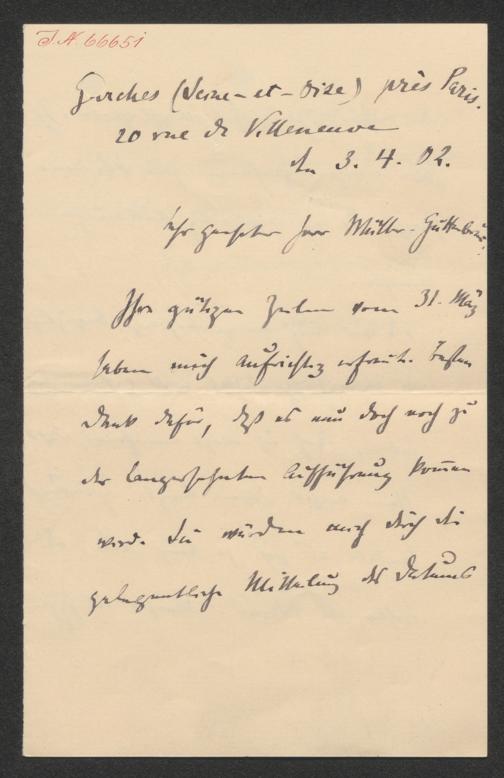 I.N. 66651
Garches (Seine-et-Oise) près Paris.
20 rue de Villeneuve
den 3. 4. 02.
Sehr geehrter Herr Müller-Guttenbrunn,
Ihre gütigen Zeilen vom 31. März
haben mich aufrichtig erfreut. Besten
Dank dafür, daß es nun doch noch zu
der langersehnten Aufführung kommen
wird. Sie würden mich durch die
gelegentliche Mitteilung des Datums